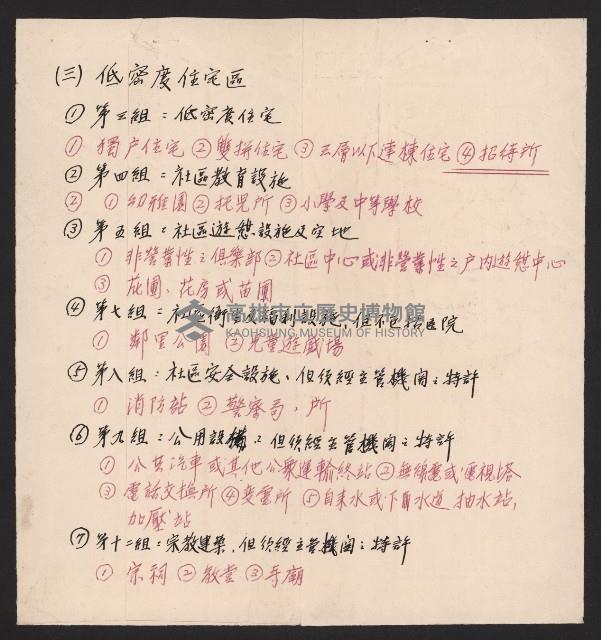 (三) 低密度住宅區
① 第三組：低密度住宅
① 獨户住宅 ② 雙拼住宅 ③ 三層以下連棟住宅 ④ 招待所
② 第四組：社區教育設施
② ① 幼稚園 ② 托児所 ③ 小學及中等學校
③ 第五組：社區遊憩設施及空地
① 非營業性之俱樂部 ② 社區中心或非營業性之户内遊憩中心
③ 花圃、花房或苗圃
④ 第七組：社區衛生及福利設施，但不包括医院
高雄市立歷史博物館
KAOHSIUNG MUSEUM OF HISTORY
① 鄰里公園 ② 児童遊戲場
⑤ 第八組：社區安全設施、但須經主管機関之特許
① 消防站 ② 警察局，所
⑥ 第九組：公用設備：但須經主管機関之特許
① 公共汽車或其他公衆運輸終站 ② 無線電或電視塔
③ 電話交換所 ④ 変電所 ⑤ 自来水或下水道 抽水站，
加壓站
⑦ 第十二組：宗教建築，但須經主管機関之特許
① 宗祠 ② 教堂 ③ 寺廟